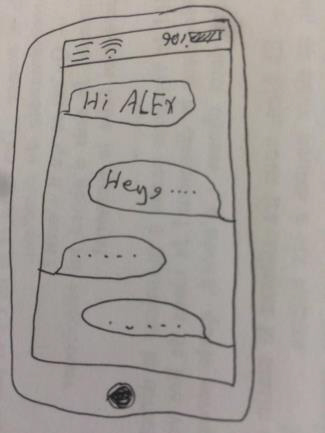 90%
Hi ALEX
Hey, ....
.....
.....